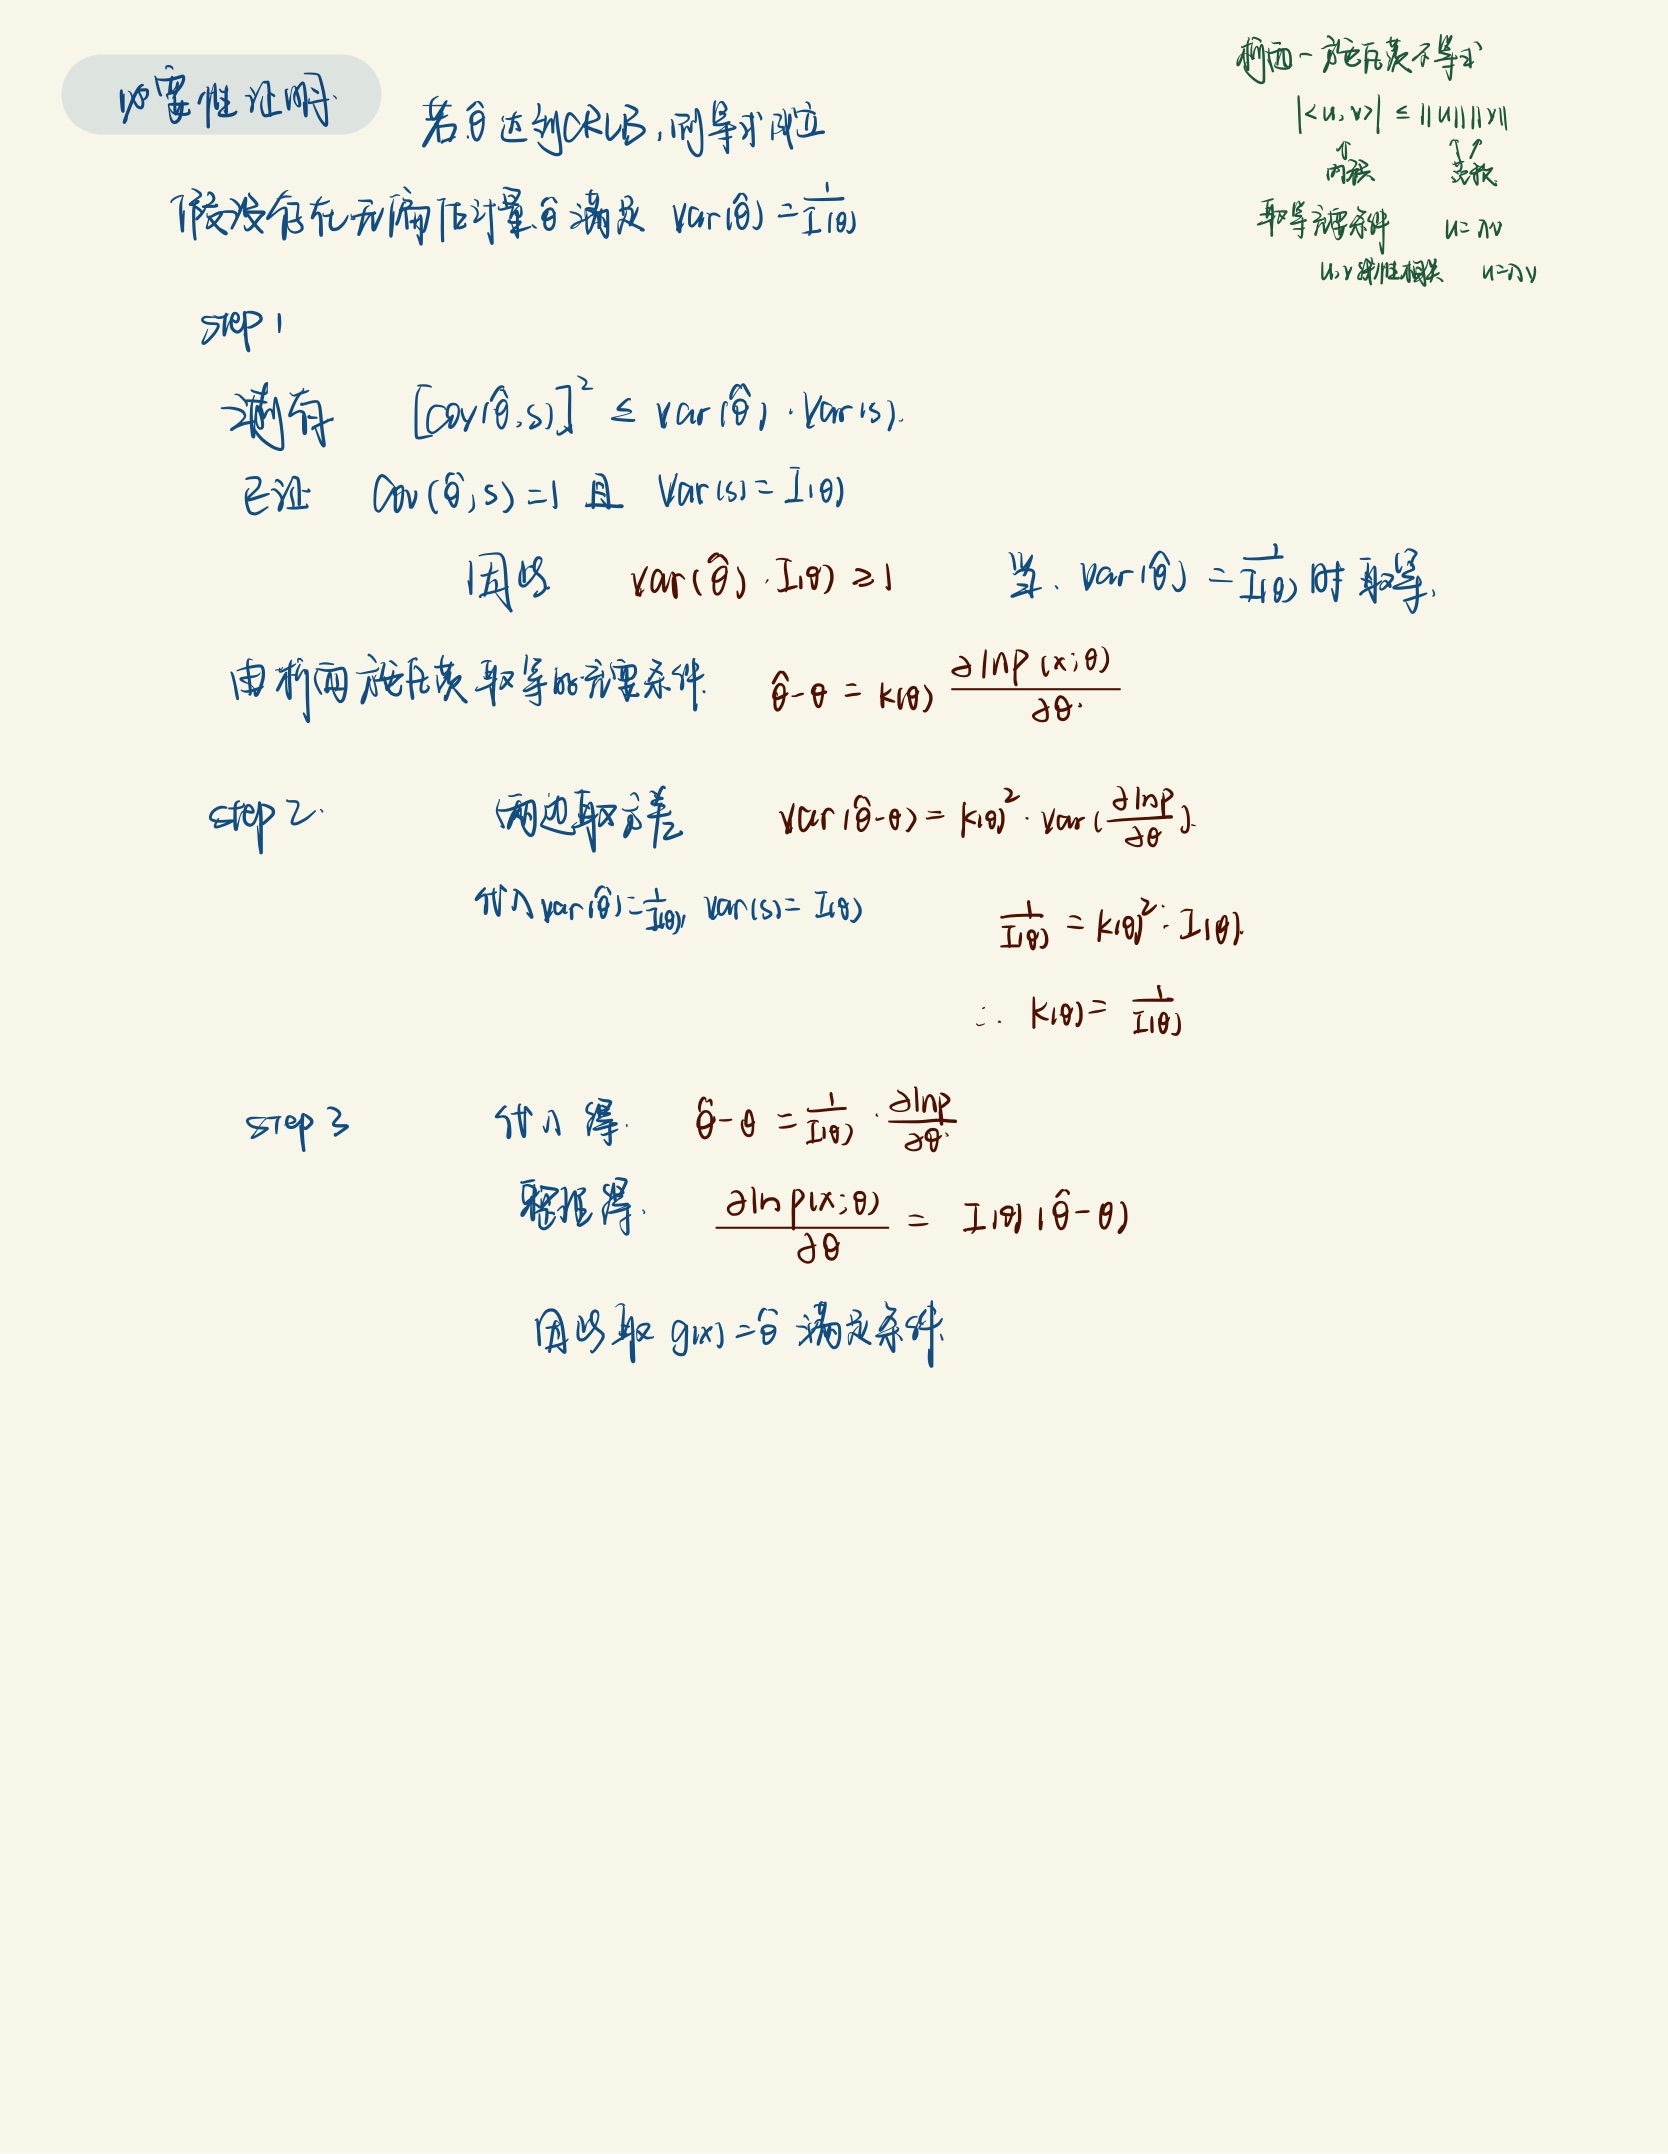 必要性证明.
若θ̂达到CRLB,则等式成立
假设存在无偏估计量θ̂满足 var(θ̂) = 1/I(θ)
柯西-施瓦茨不等式
|<u,v>| ≤ ||u|| ||v||
↑ ↑↑
内积 范数
取等充要条件 u=λv
u,v线性相关 u=λv
step 1
[cov(θ̂,s)]² ≤ var(θ̂)·Var(s).
已证 Cov(θ̂,s)=1 且 Var(s)=I(θ)
因此 var(θ̂)·I(θ) ≥ 1 当. var(θ̂) = 1/I(θ) 时 取等.
由柯西施瓦茨取等的充要条件. θ̂-θ = k(θ) ∂lnp(x;θ)/∂θ.
step 2. 两边取方差 Var(θ̂-θ) = k(θ)²·Var(∂lnp/∂θ).
代入var(θ̂)=1/I(θ), var(s)=I(θ) 1/I(θ) = k(θ)²·I(θ).
∴ k(θ) = 1/I(θ)
step 3 代入得. θ̂-θ = 1/I(θ) · ∂lnp/∂θ.
整理得. ∂lnp(x;θ)/∂θ = I(θ)(θ̂-θ)
因此取 g(x)=θ̂ 满足条件.